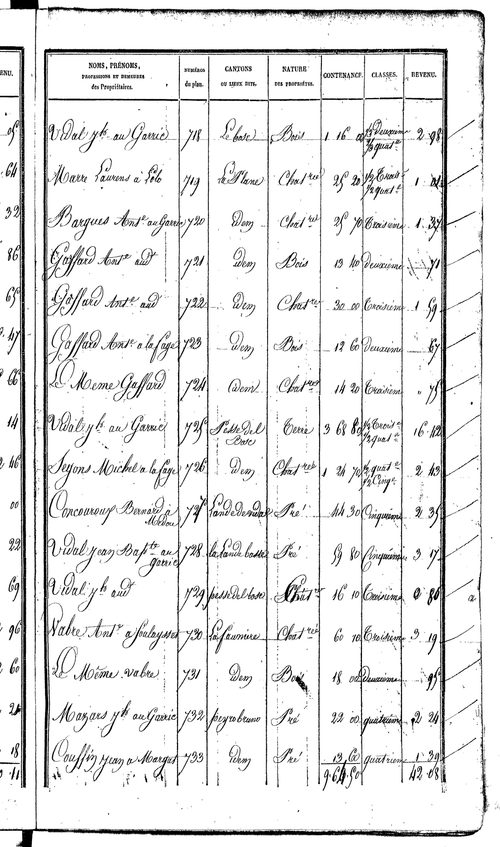 NOMS, PRÉNOMS, NUMÉROS CANTONS NATURE CONTENANCE. CLASSES. REVENU.
PROFESSIONS ET DEMEURES du plan. OU LIEUX DITS. DES PROPRIÉTÉS.
des Propriétaires.
Vidal yh au Garric 718 Le bosc Bois 1 16 00 ½ Deuxieme ½ quate 2 98
Marre Laurens à 719 La Plane Chatrée 25 20 ½ Trois ½ quate 1 01
Bargues Ante au Garric 720 idem Chatrée 25 70 Troisieme 1 37
Gaffard Ante audt 721 idem Bois 13 40 deuxieme 71
Gaffard Ante audt 722 idem Chatrée 30 00 Troisieme 1 59
Gaffard Ante à la fage 723 idem Bois 12 60 Deuxieme 67
Le Même Gaffard 724 idem Chatrée 14 20 Troisieme " 75
Vidal yh au Garric 725 Pesse del Bosc Terre 3 68 80 ½ Trois ½ quate 16 42
Seyons Michel à la fage 726 idem Chatrée 1 24 70 ½ quate ½ Cinqe 2 43
Bernard à 727 Pré 44 30 Cinquieme 2 35
Vidal Jean Bapte au garric 728 la Lande basse Pré 59 80 Cinquieme 3 17
Vidal yh audt 729 pesse del bosc Chatrée 16 10 Troisieme 0 86
Vabre Ante à Soulaysset 730 La faumiere Chatrée 60 10 Troisieme 3 19
Le Même Vabre 731 idem Bois 18 00 Deuxieme 95
Mazars yh au Garric 732 peyrobruno Pré 22 00 quatrieme 2 24
Couffin Jean à Margut 733 idem Pré 13 60 quatrieme 1 39
9.64.50 42.08